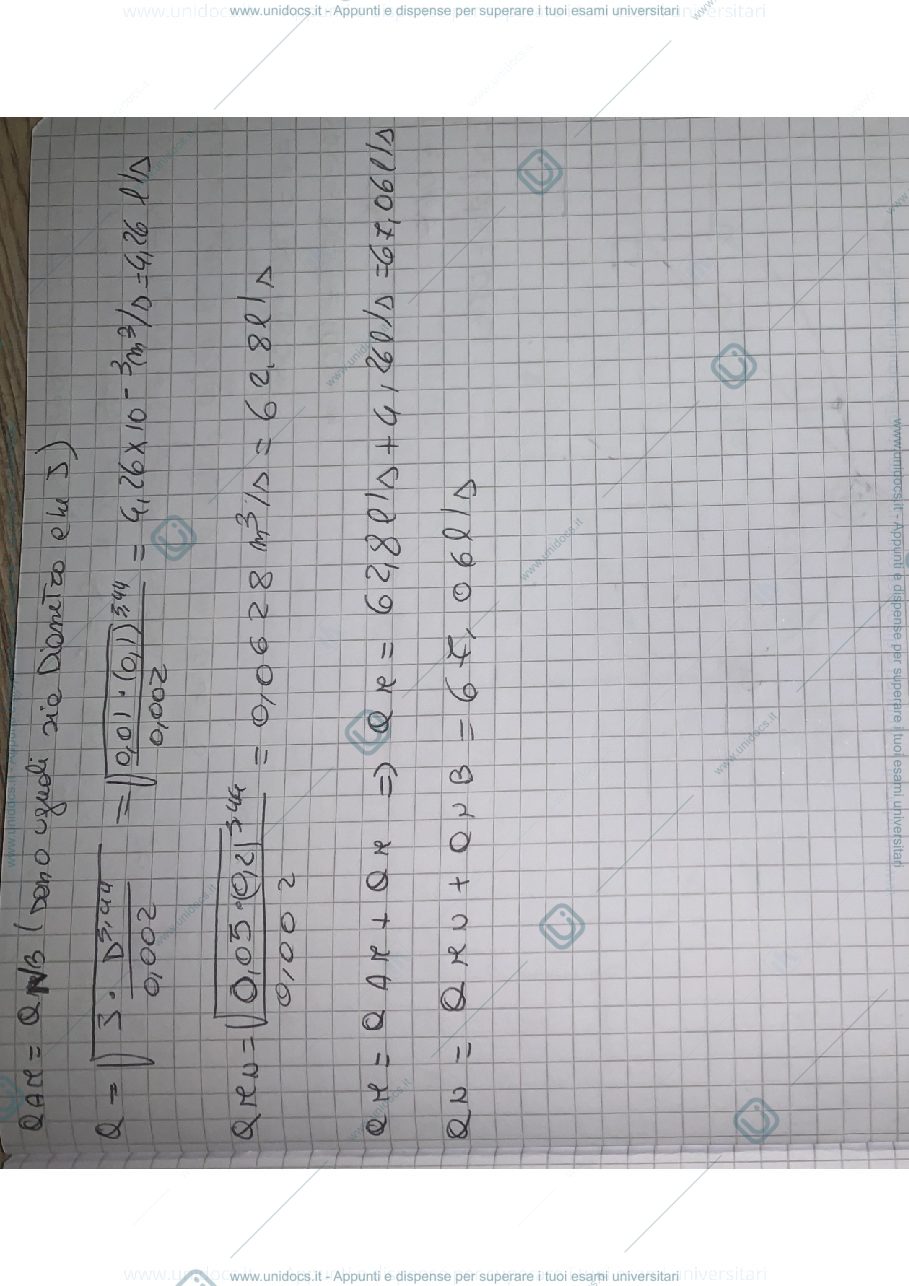 www.unidocs.it - Appunti e dispense per superare i tuoi esami universitari
QAM = QNB (sono uguali sia Diametro che J)
Q = √(J · D^5,44 / 0,002) = √(0,01 · (0,1)^5,44 / 0,002) = 4,26 x 10^-3 m³/s = 4,26 l/s
QMN = √(0,05 · (0,2)^5,44 / 0,002) = 0,0628 m³/s = 62,8 l/s
QM = QAM + QM => QM = 62,8 l/s + 4,26 l/s = 67,06 l/s
QN = QMN + QNB = 67,06 l/s
www.unidocs.it - Appunti e dispense per superare i tuoi esami universitari
www.unidocs.it - Appunti e dispense per superare i tuoi esami universitari